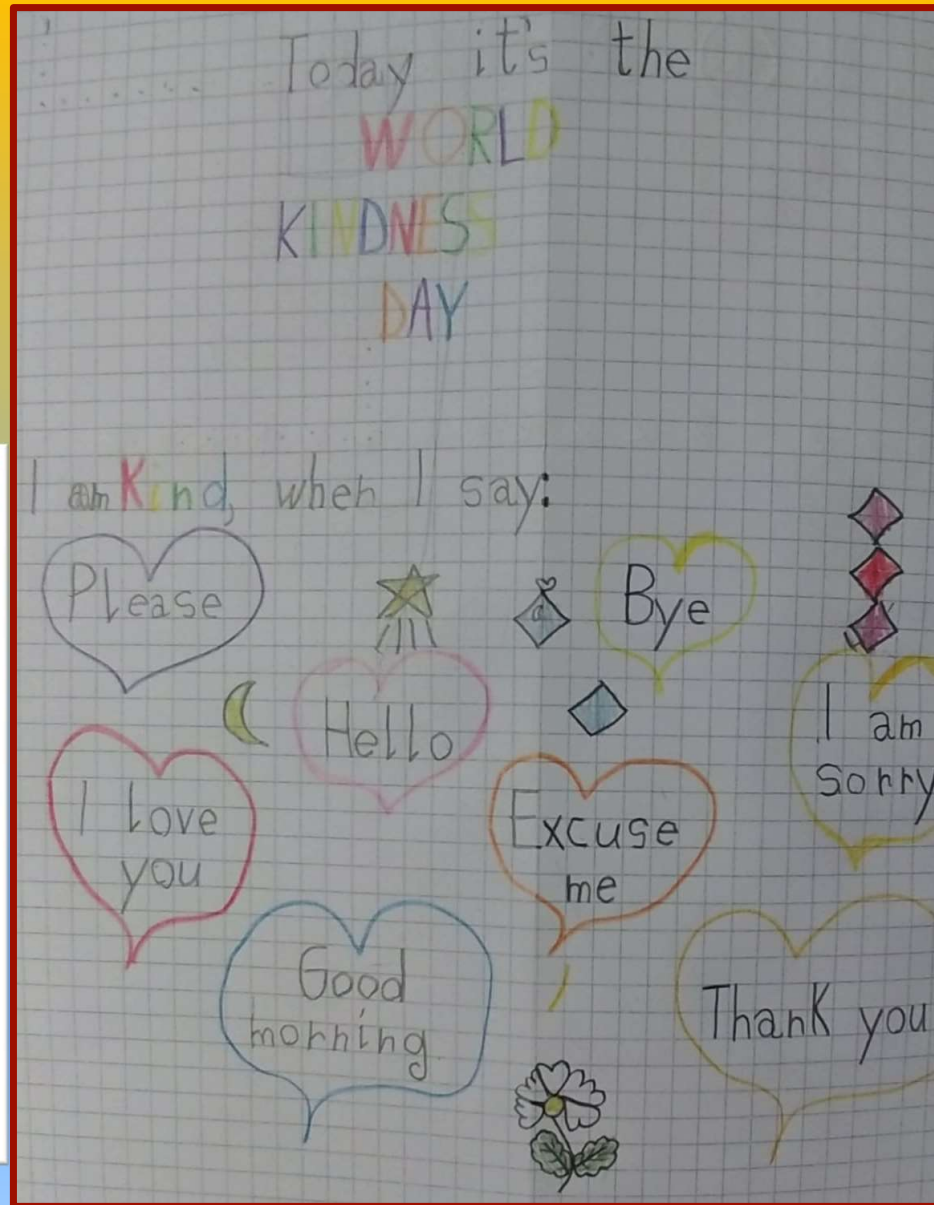 Today it's the
WORLD
KINDNESS
DAY
I am Kind, when I say:
Please
Bye
Hello
I am
sorry
I love
you
Excuse
me
Good
morning
Thank you